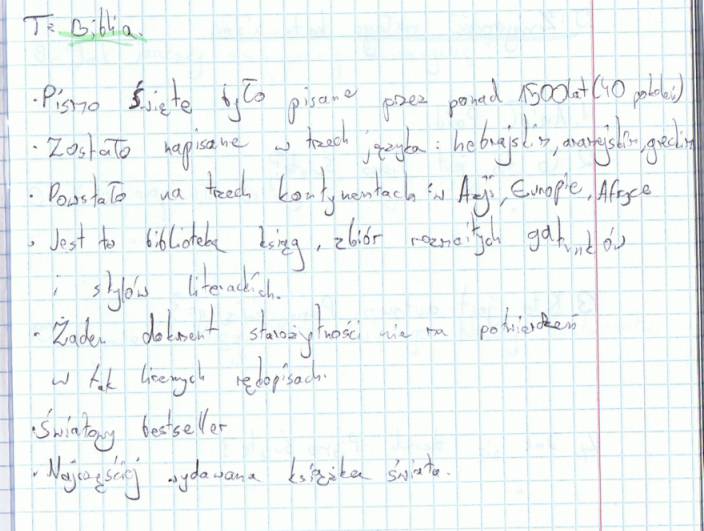 T: Biblia.
· Pismo Święte było pisane przez ponad 1500 lat (40 pokoleń)
· Zostało napisane w trzech języka: hebrajskim, aramejskim, greckim
· Powstało na trzech kontynentach: w Azji, Europie, Afryce
· Jest to biblioteka ksiąg, zbiór rozmaitych gatunków
i stylów literackich.
· Żaden dokument starożytności nie ma potwierdzeń
w tak licznych rękopisach.
· Światowy bestseller
· Najczęściej wydawana książka świata.